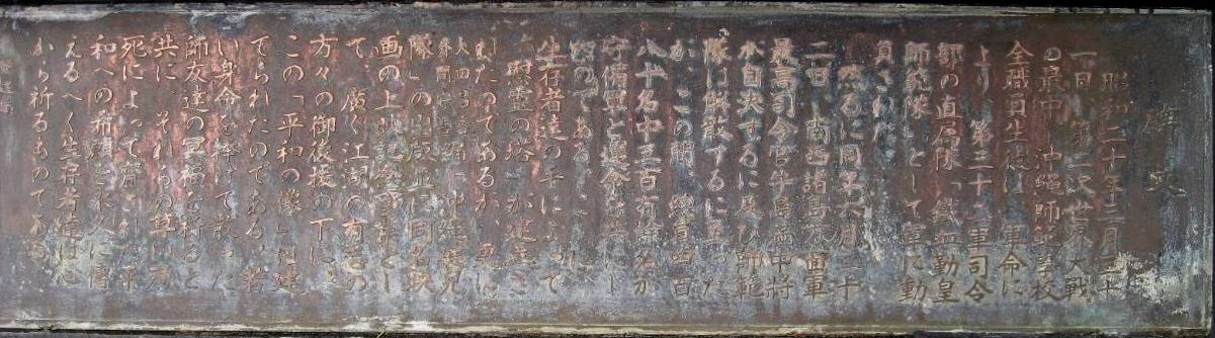 碑文
昭和二十年三月三十
一日、第二次世界大戦
の最中、沖縄師範学校
全職員生徒は、軍命に
より、第三十二軍司令
部の直属隊「鉄血勤皇
師範隊」として軍に動
員された。
然るに同年六月二十
二日、南西諸島方面軍
最高司令官牛島満中将
が自決するに及び師範
隊は解散するに至った
が、この間、総員四百
八十名中三百有余名が
守備軍と運命を共にし
たのである。
「慰霊の塔」が建立さ
生存者達の手によって
れたのであるが、更に
大田昌秀 外間守善編「沖縄健児
隊」の出版並に同名映
画の上映記念事業とし
て、廣く江湖の有志の
方々の御後援の下に、
この「平和の像」は建
てられたのである。若
い身命を捧げて散った
師友達の冥福を祈ると
共に、それらの尊い
死によって
和への希願を永久に傳
えるべく生存者達は心
から祈るものである。